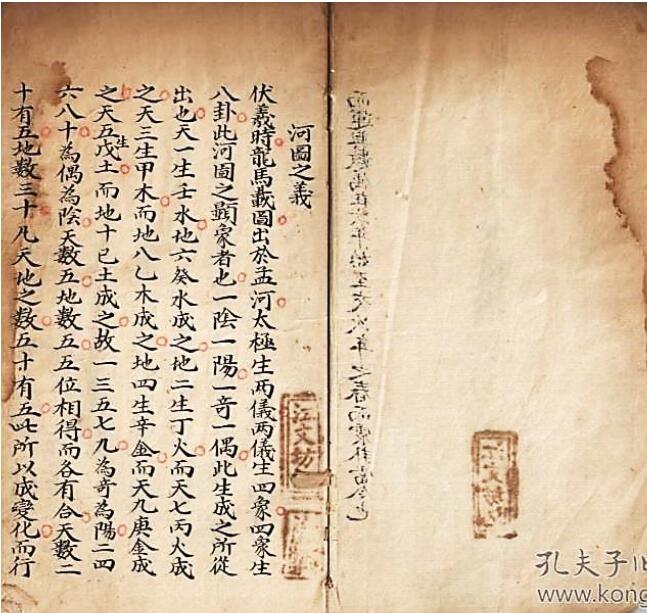 河圖之義
伏羲時龍馬載圖出於孟河太極生两儀两儀生四象四象生
八卦此河圖之顯象者也一陰一陽一竒一偶此生成之所從
出也天一生壬水地六癸水成之地二生丁火而天七丙火成
之天三生甲木而地八乙木成之地四生辛金而天九庚金成
之天五戊土而地十己土成之故一三五七九為竒為陽二四
生
六八十為偶為陰天數五地數五五位相得而各有合天數二
十有五地數三十凡天地之數五十有五此所以成變化而行
江文坊
孔夫子旧
www.kong